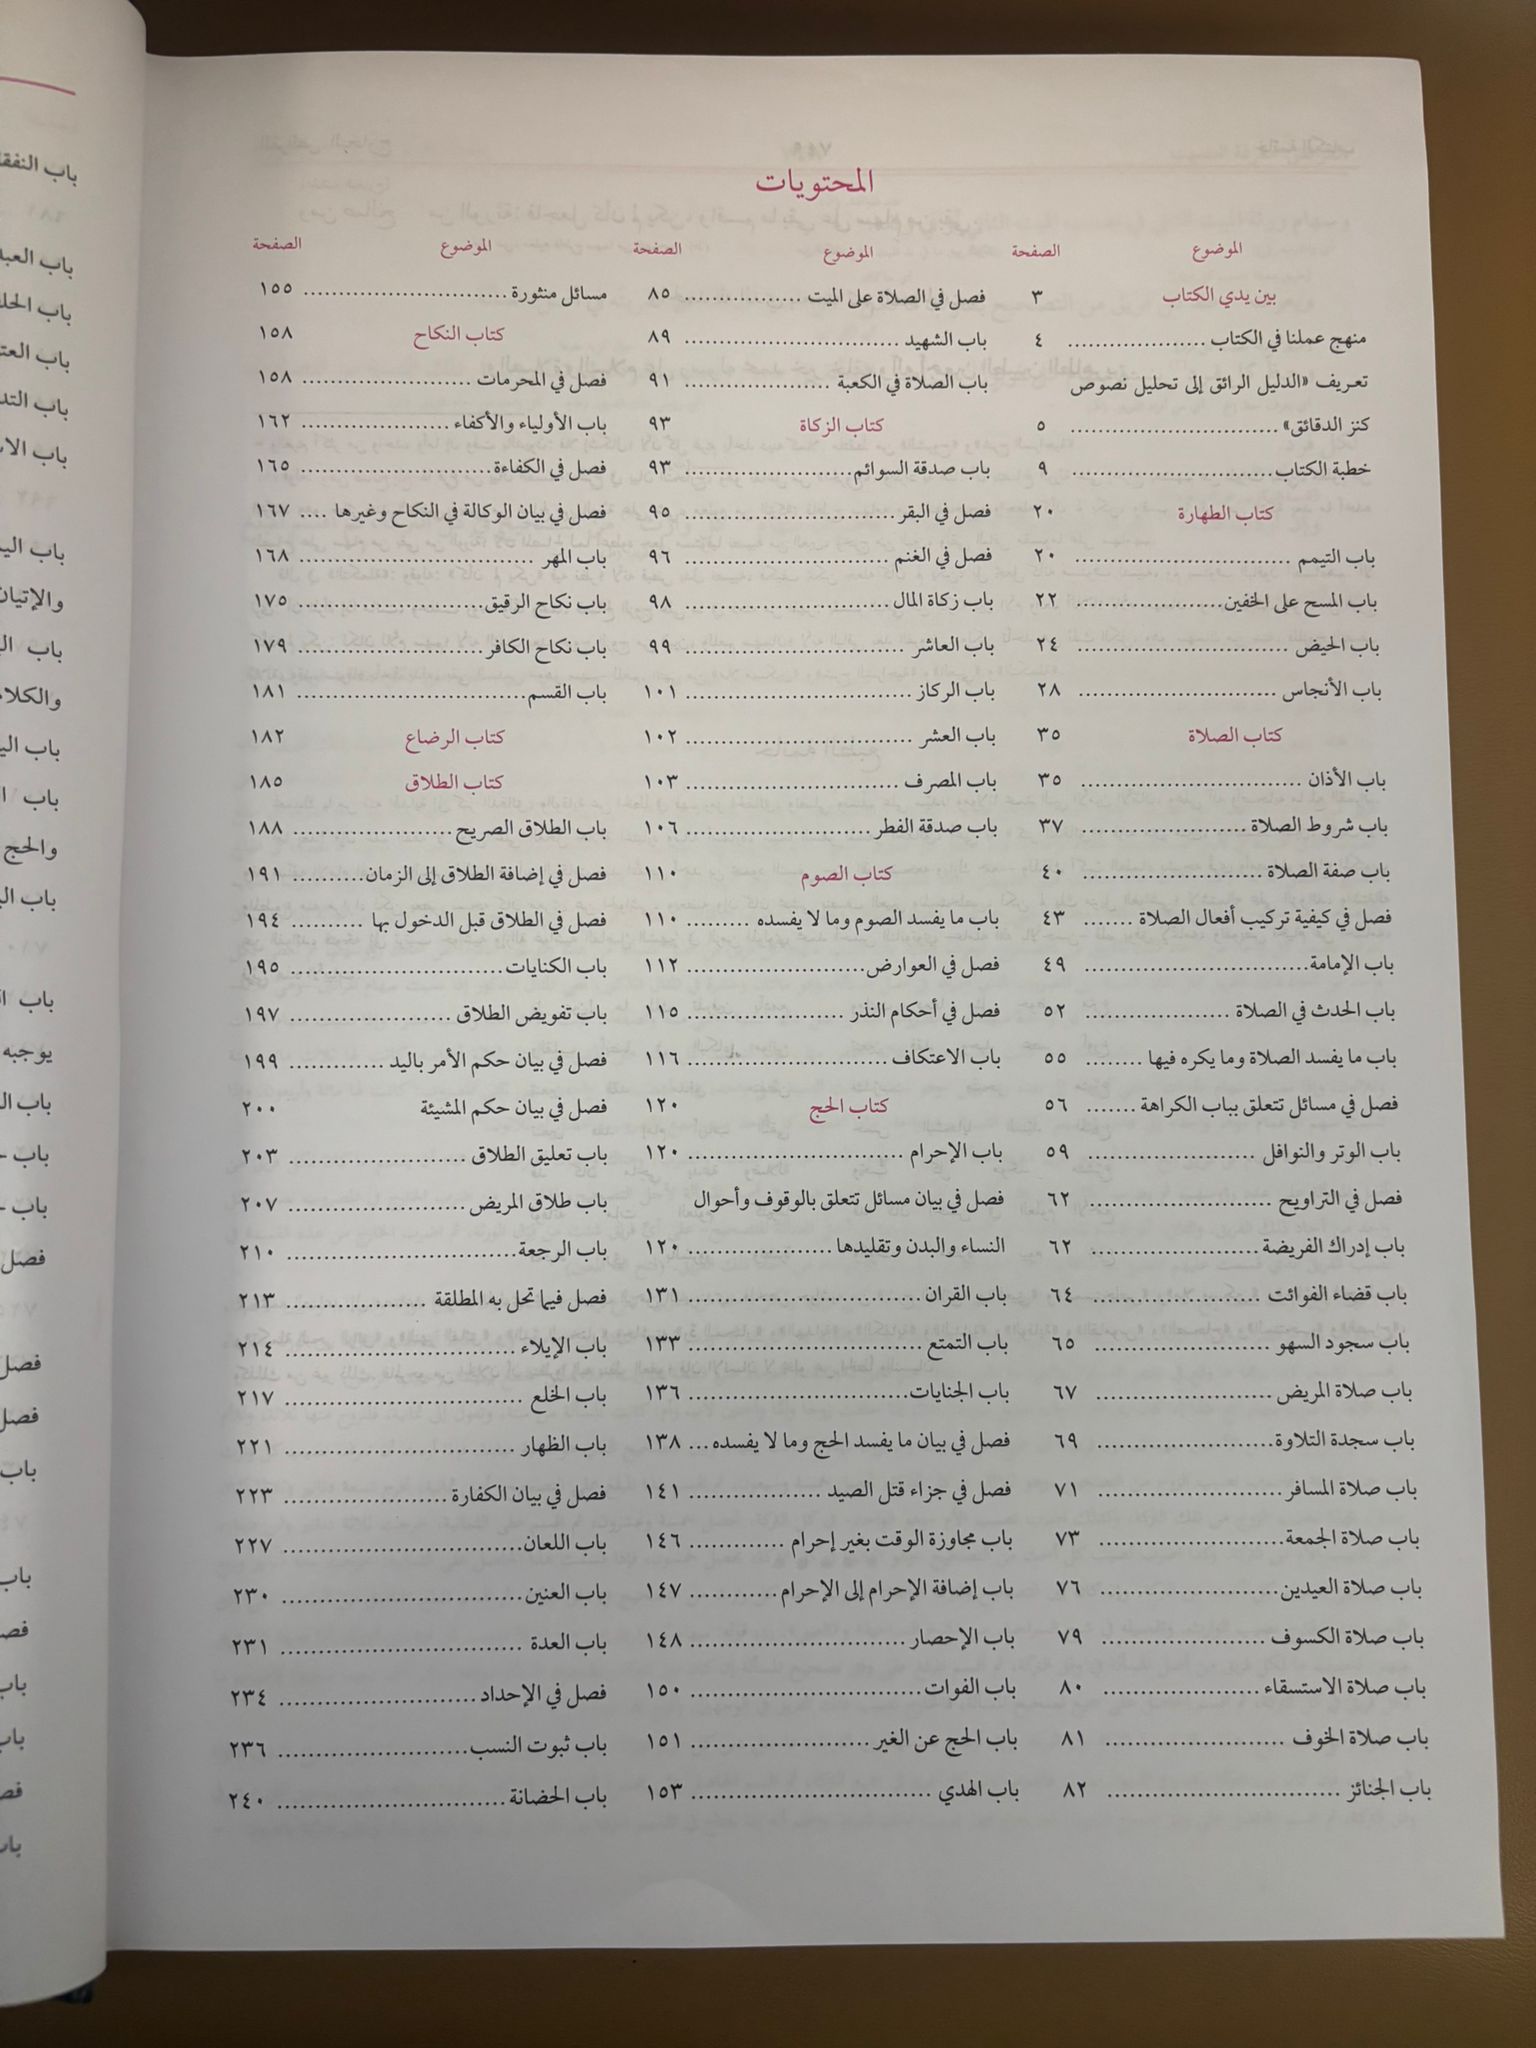 المحتويات
الموضوع الصفحة
بين يدي الكتاب ٣
منهج عملنا في الكتاب .................... ٤
تعريف «الدليل الرائق إلى تحليل نصوص
كنز الدقائق» .............................. ٥
خطبة الكتاب ............................ ٩
كتاب الطهارة ٢٠
باب التيمم .............................. ٢٠
باب المسح على الخفين ..................... ٢٢
باب الحيض .............................. ٢٤
باب الأنجاس ............................ ٢٨
كتاب الصلاة ٣٥
باب الأذان .............................. ٣٥
باب شروط الصلاة ....................... ٣٧
باب صفة الصلاة ......................... ٤٠
فصل في كيفية تركيب أفعال الصلاة ....... ٤٣
باب الإمامة ............................... ٤٩
باب الحدث في الصلاة .................... ٥٢
باب ما يفسد الصلاة وما يكره فيها ........ ٥٥
فصل في مسائل تتعلق بباب الكراهة ....... ٥٦
باب الوتر والنوافل ........................ ٥٩
فصل في التراويح ......................... ٦٢
باب إدراك الفريضة ....................... ٦٢
باب قضاء الفوائت ....................... ٦٤
باب سجود السهو ........................ ٦٥
باب صلاة المريض ........................ ٦٧
باب سجدة التلاوة ........................ ٦٩
باب صلاة المسافر ......................... ٧١
باب صلاة الجمعة ......................... ٧٣
باب صلاة العيدين ........................ ٧٦
باب صلاة الكسوف ...................... ٧٩
باب صلاة الاستسقاء ..................... ٨٠
باب صلاة الخوف ........................ ٨١
باب الجنائز ................................ ٨٢
الموضوع الصفحة
فصل في الصلاة على الميت ................ ٨٥
باب الشهيد .............................. ٨٩
باب الصلاة في الكعبة .................... ٩١
كتاب الزكاة ٩٣
باب صدقة السوائم ....................... ٩٣
فصل في البقر ............................. ٩٥
فصل في الغنم ............................ ٩٦
باب زكاة المال ............................ ٩٨
باب العاشر .............................. ٩٩
باب الركاز .............................. ١٠١
باب العشر .............................. ١٠٢
باب المصرف ............................ ١٠٣
باب صدقة الفطر ......................... ١٠٦
كتاب الصوم ١١٠
باب ما يفسد الصوم وما لا يفسده ......... ١١٠
فصل في العوارض ........................ ١١٢
فصل في أحكام النذر ..................... ١١٥
باب الاعتكاف .......................... ١١٦
كتاب الحج ١٢٠
باب الإحرام ............................. ١٢٠
فصل في بيان مسائل تتعلق بالوقوف وأحوال
النساء والبدن وتقليدها ................... ١٢٠
باب القران ............................... ١٣١
باب التمتع ............................... ١٣٣
باب الجنايات .............................. ١٣٦
فصل في بيان ما يفسد الحج وما لا يفسده ... ١٣٨
فصل في جزاء قتل الصيد .................. ١٤١
باب مجاوزة الوقت بغير إحرام ............. ١٤٦
باب إضافة الإحرام إلى الإحرام ............ ١٤٧
باب الإحصار ............................. ١٤٨
باب الفوات ............................... ١٥٠
باب الحج عن الغير ........................ ١٥١
باب الهدي ............................... ١٥٣
الموضوع الصفحة
مسائل منثورة ............................ ١٥٥
كتاب النكاح ١٥٨
فصل في المحرمات ........................ ١٥٨
باب الأولياء والأكفاء ..................... ١٦٢
فصل في الكفاءة .......................... ١٦٥
فصل في بيان الوكالة في النكاح وغيرها .... ١٦٧
باب المهر ................................ ١٦٨
باب نكاح الرقيق ......................... ١٧٥
باب نكاح الكافر ......................... ١٧٩
باب القسم .............................. ١٨١
كتاب الرضاع ١٨٢
كتاب الطلاق ١٨٥
باب الطلاق الصريح ...................... ١٨٨
فصل في إضافة الطلاق إلى الزمان .......... ١٩١
فصل في الطلاق قبل الدخول بها .......... ١٩٤
باب الكنايات ............................. ١٩٥
باب تفويض الطلاق ...................... ١٩٧
فصل في بيان حكم الأمر باليد ............. ١٩٩
فصل في بيان حكم المشيئة ٢٠٠
باب تعليق الطلاق ........................ ٢٠٣
باب طلاق المريض ........................ ٢٠٧
باب الرجعة ............................... ٢١٠
فصل فيما تحل به المطلقة ................... ٢١٣
باب الإيلاء ............................... ٢١٤
باب الخلع ................................ ٢١٧
باب الظهار ............................... ٢٢١
فصل في بيان الكفارة ...................... ٢٢٣
باب اللعان ................................ ٢٢٧
باب العنين ................................ ٢٣٠
باب العدة ................................ ٢٣١
فصل في الإحداد .......................... ٢٣٤
باب ثبوت النسب .......................... ٢٣٦
باب الحضانة ............................... ٢٤٠